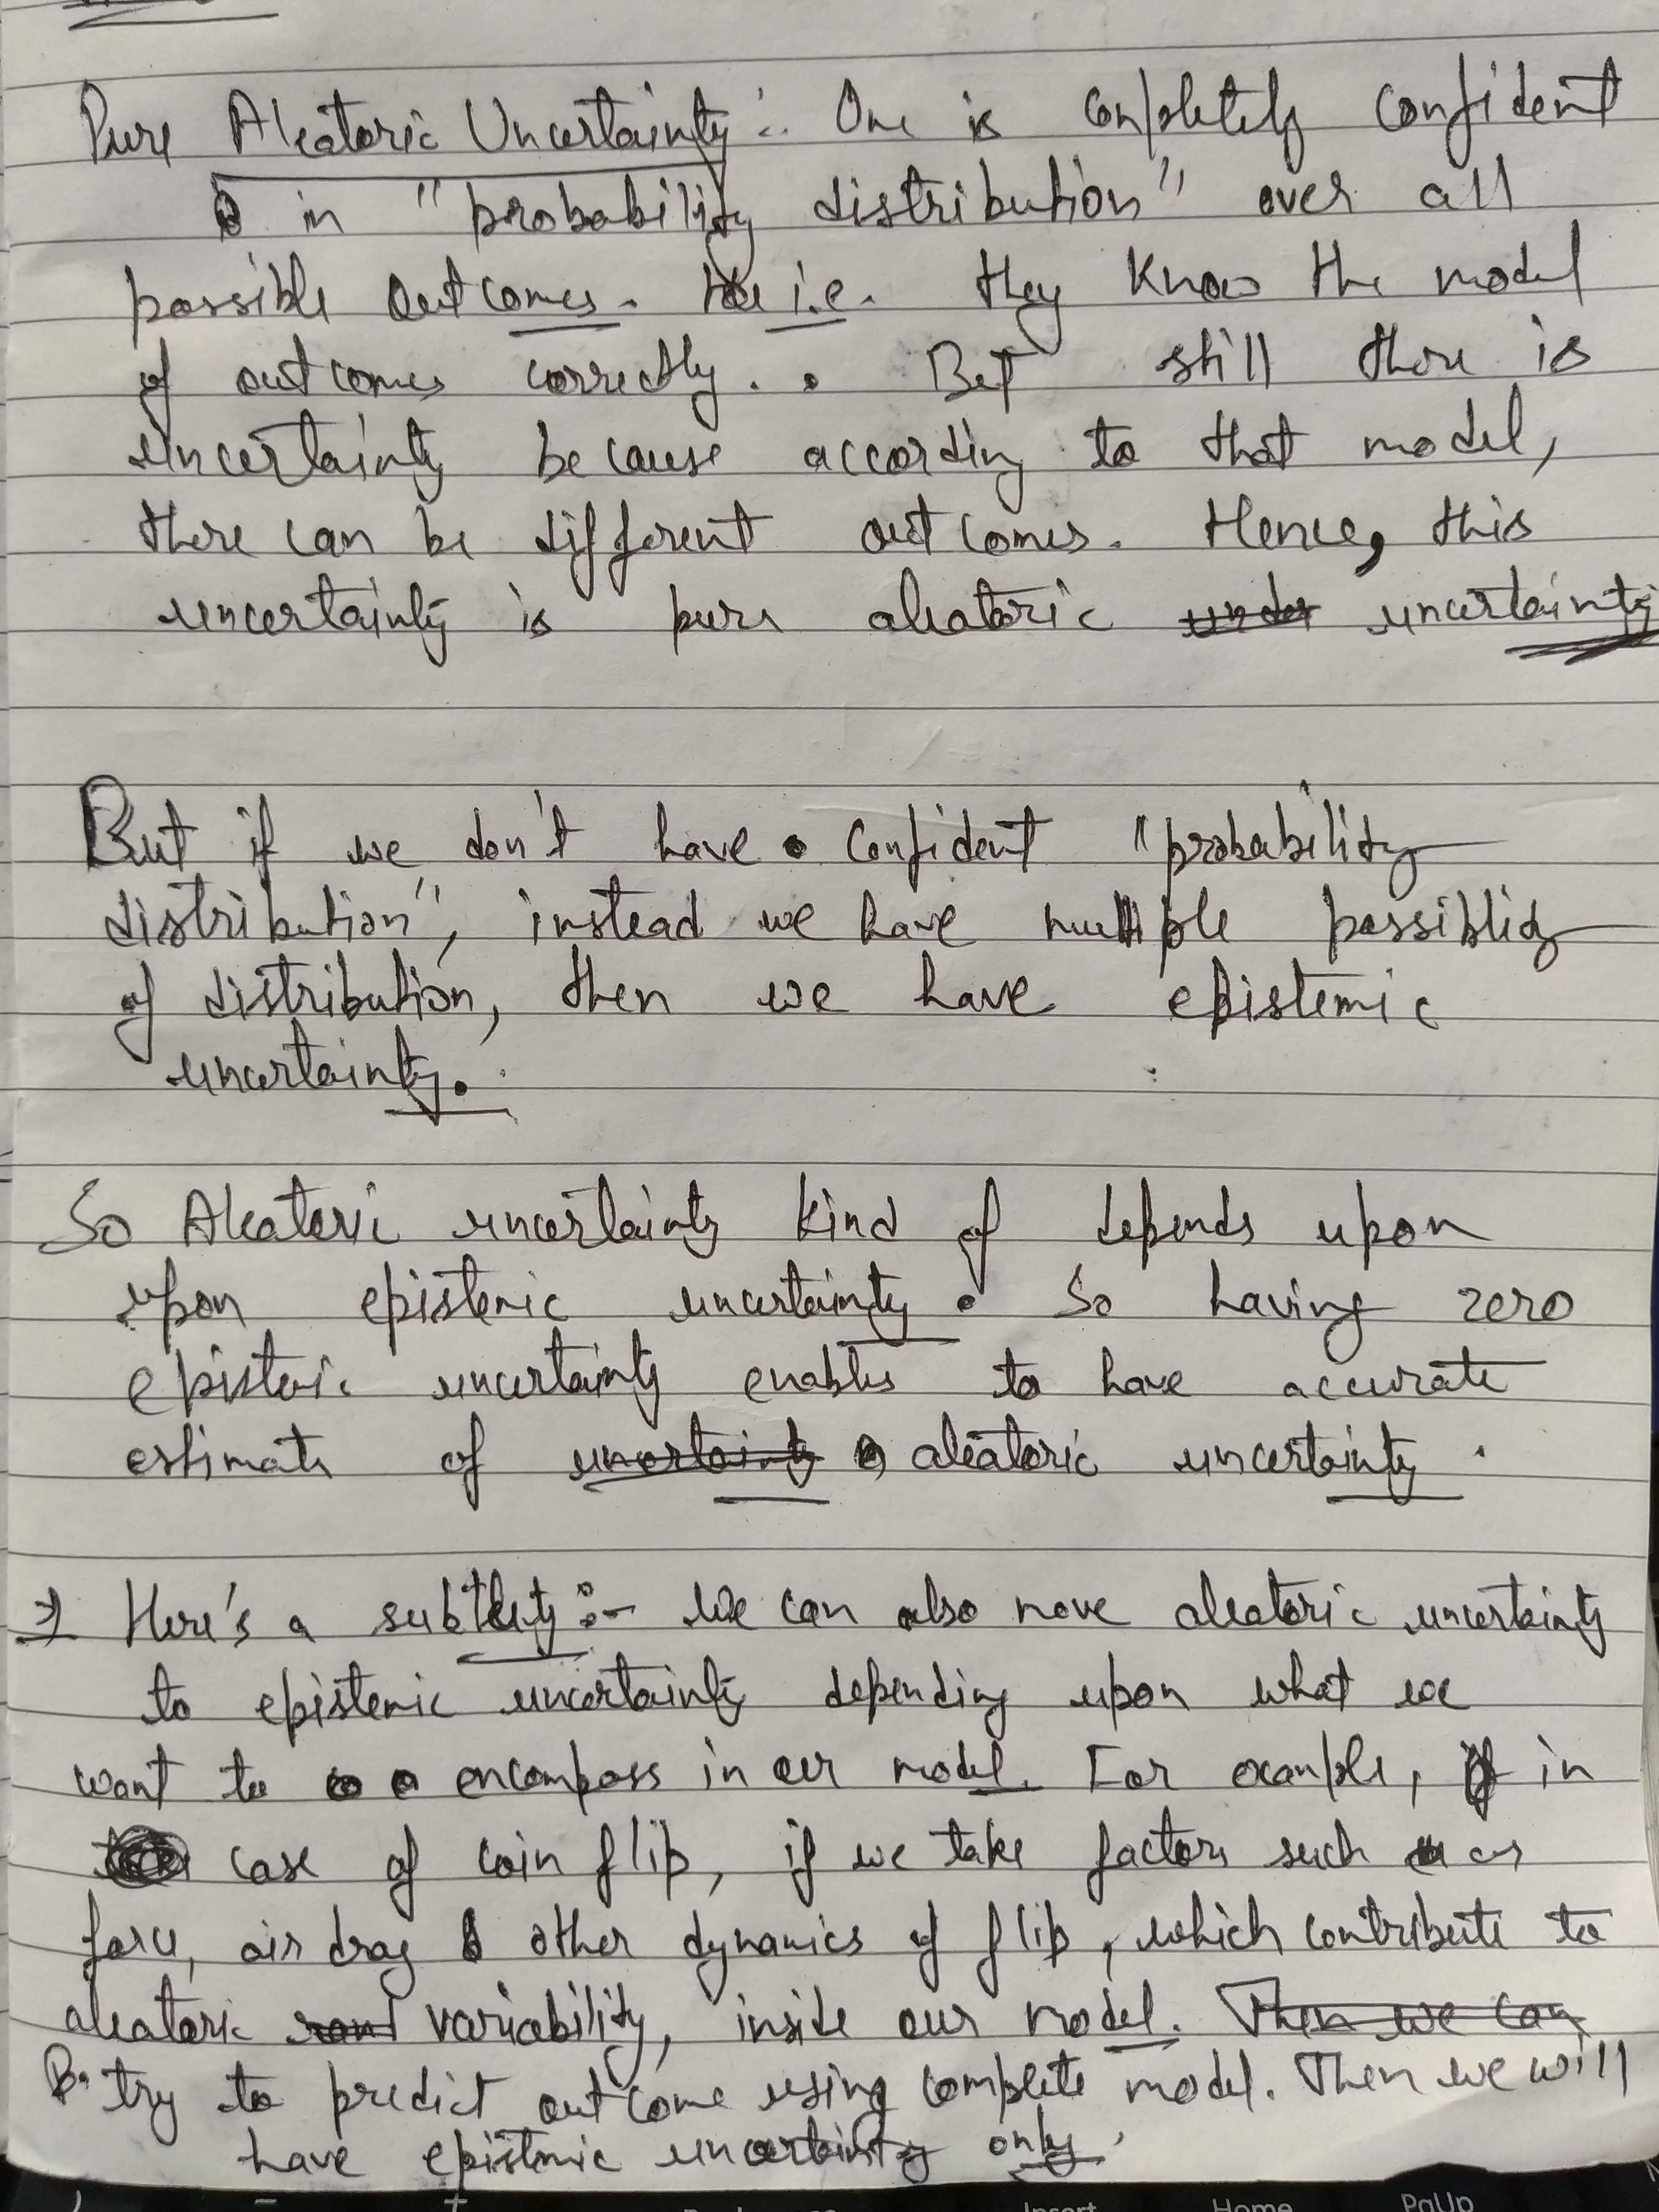 Pure Aleatoric Uncertainty :. One is completely confident
in "probability distribution" over all
possible outcomes. i.e. they know the model
of outcomes correctly. But still there is
uncertainty because according to that model,
there can be different outcomes. Hence, this
uncertainty is pure aleatoric under uncertainty
But if we don't have confident "probability
distribution", instead we have multiple possiblity
of distribution, then we have epistemic
uncertainty.
So Aleatoric uncertainty kind of depends upon
upon epistemic uncertainty. So having zero
epistemic uncertainty enables to have accurate
estimate of uncertainty aleatoric uncertainty.
⇒ Here's a subtlety :- We can also move aleatoric uncertainty
to epistemic uncertainty depending upon what we
want to encompass in our model. For example, if in
case of coin flip, if we take factors such as
force, air drag & other dynamics of flip, which contribute to
aleatoric rand variability, inside our model. Then we can
& try to predict outcome using complete model. Then we will
have epistemic uncertainty only.
Insert Home PgUp